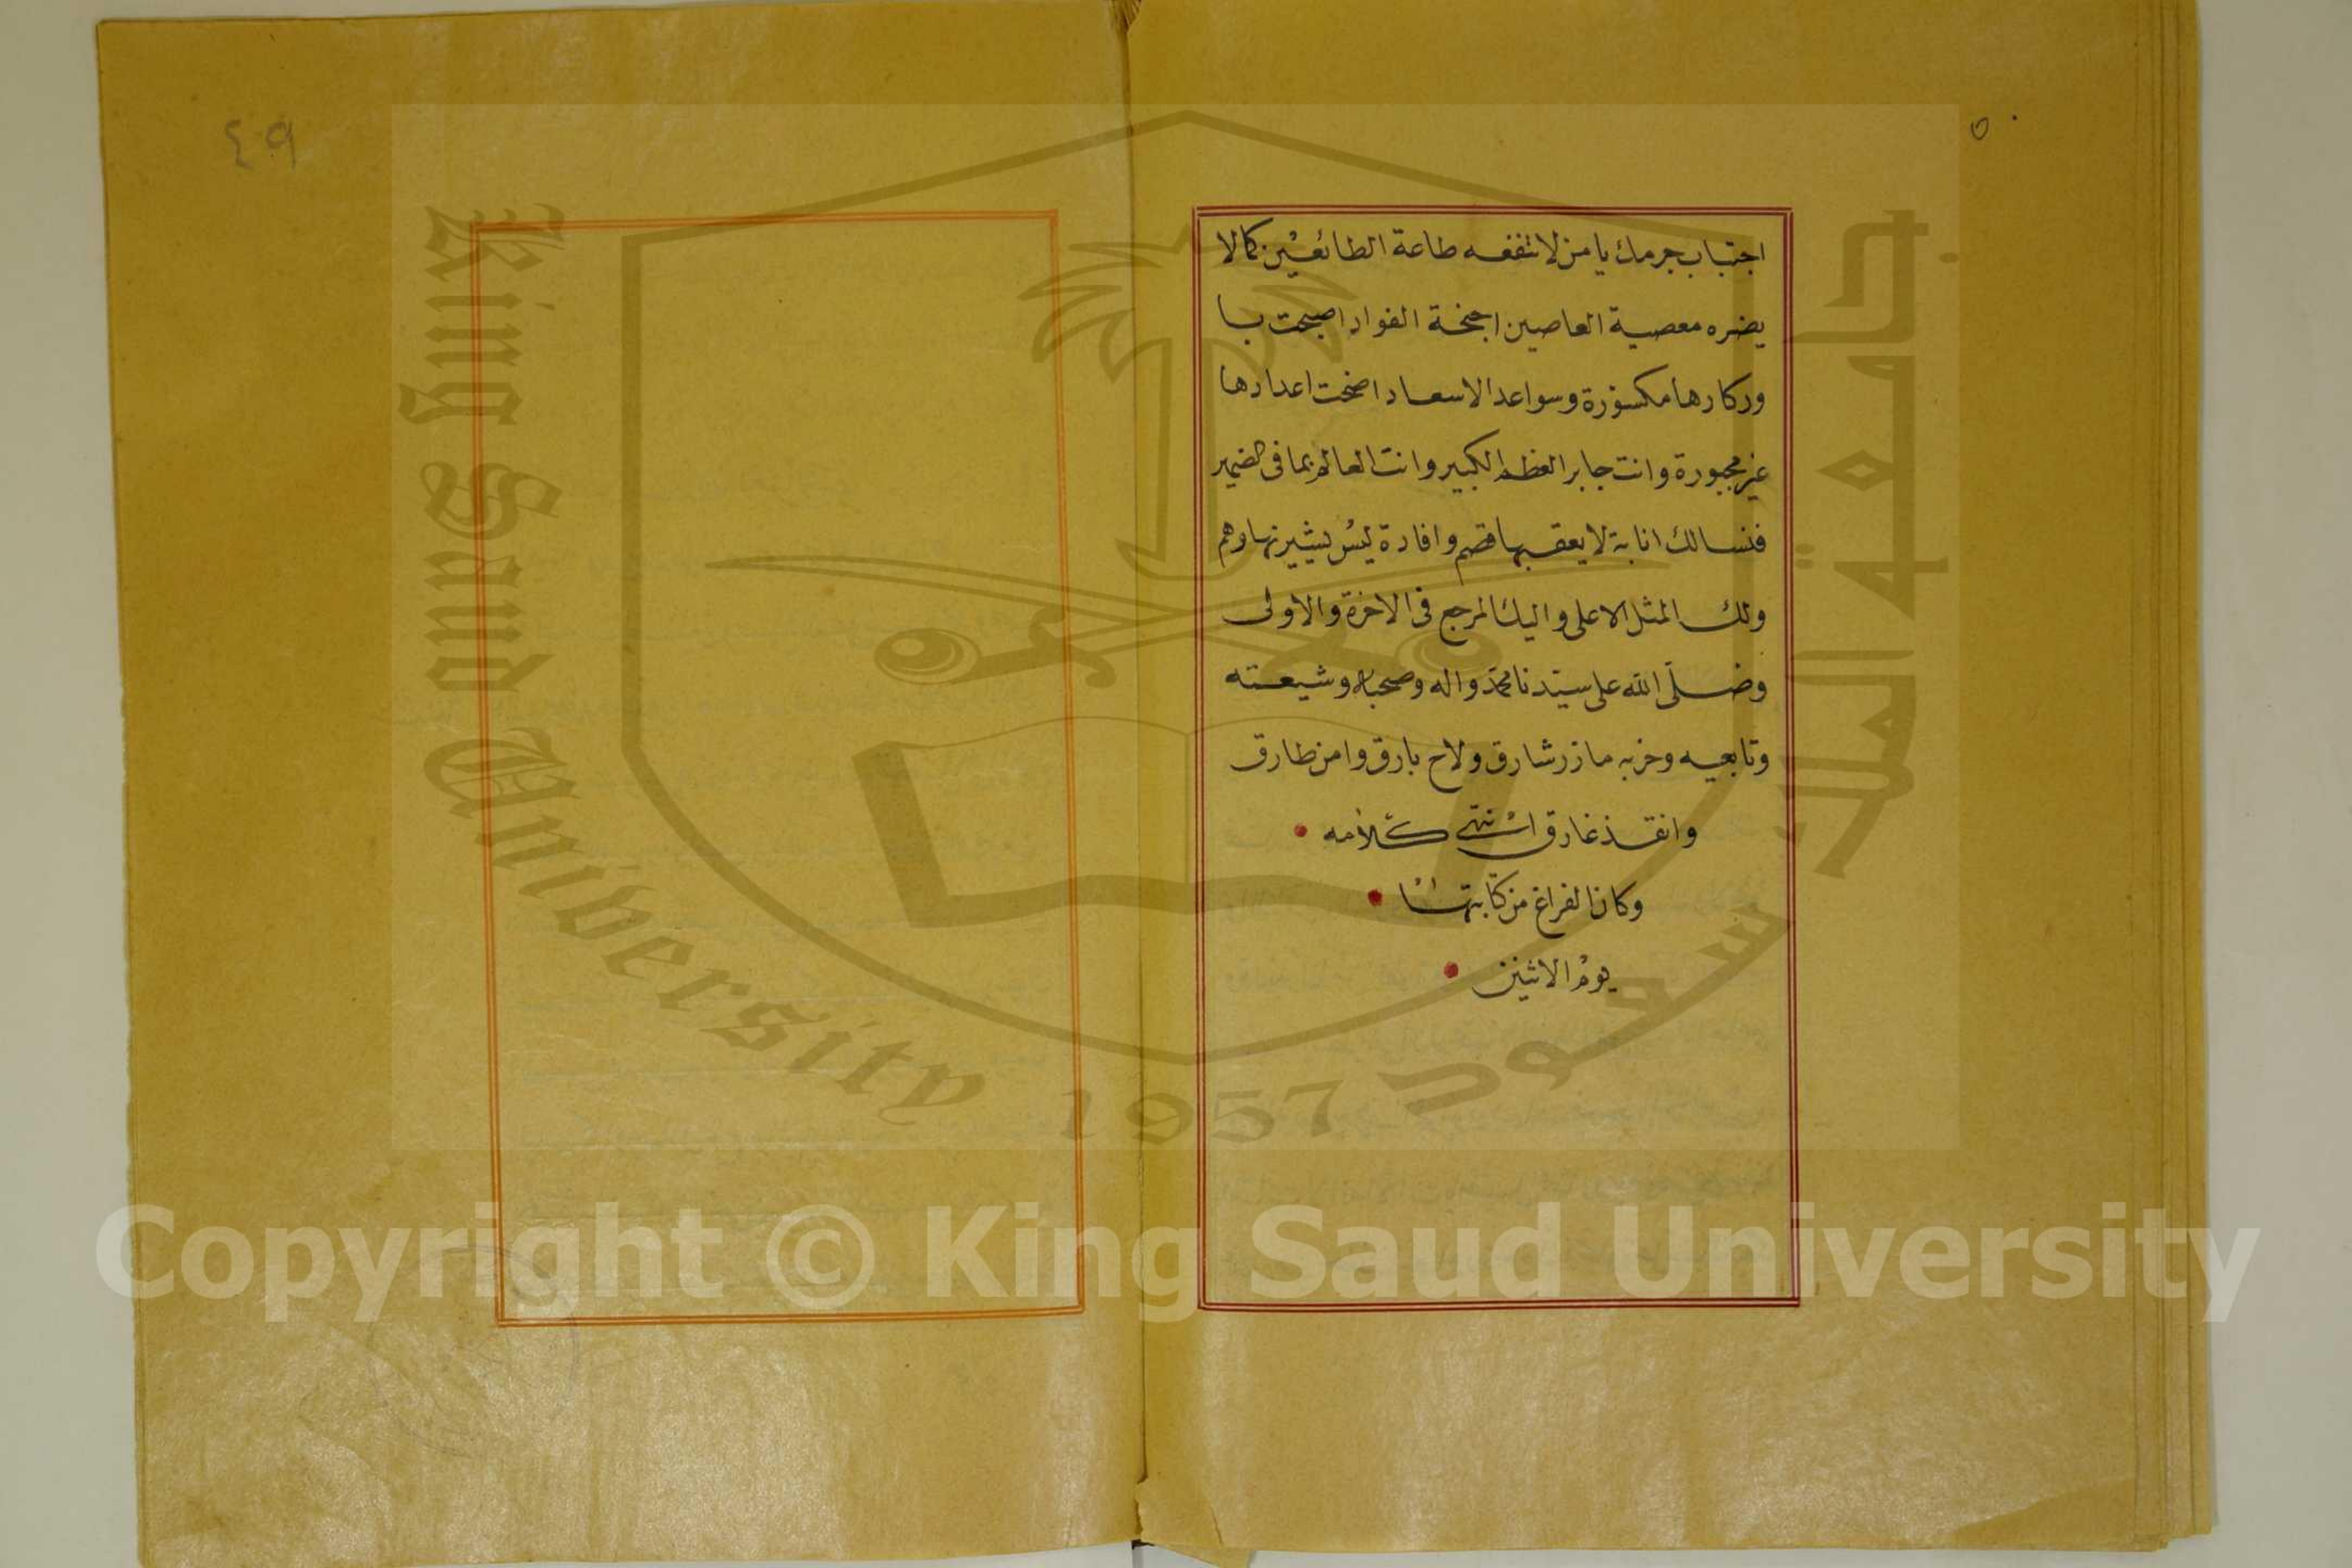 ٥٠
اجتباب جرمك يا من لا تنفعه طاعة الطائعين كما لا
يضره معصية العاصين اجنحة الفواد اصبحت با
وركارها مكسورة وسواعد الاسعاد اضحت اعدادها
غير مجبورة وانت جابر العظم الكبير وانت العالم بما في الضمير
فنسالك انابة لا يعقبها قصم وافادة ليس يشيرنها وهم
ولك المثل الاعلى واليك المرجع في الاخرة والاولى
وصلى الله على سيدنا محمد واله وصحبه وشيعته
وتابعيه وحزبه ما زر شارق ولاح بارق وامن طارق
وانقذ غارق انتهى كلامه
وكان الفراغ من كتابتها
يوم الاثنين
٤٩
King Saud University
1957
جامعة الملك سعود
Copyright © King Saud University